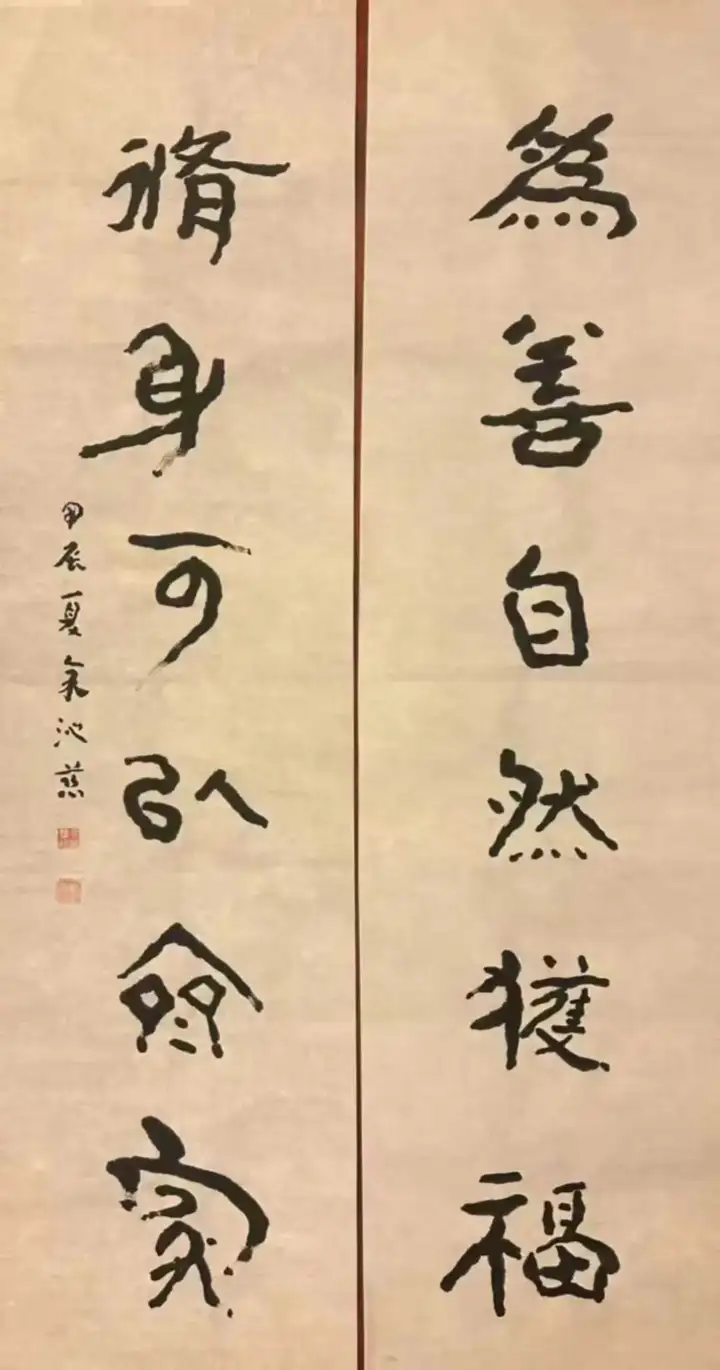 爲善自然獲福
脩身可以齊家
甲辰夏沁